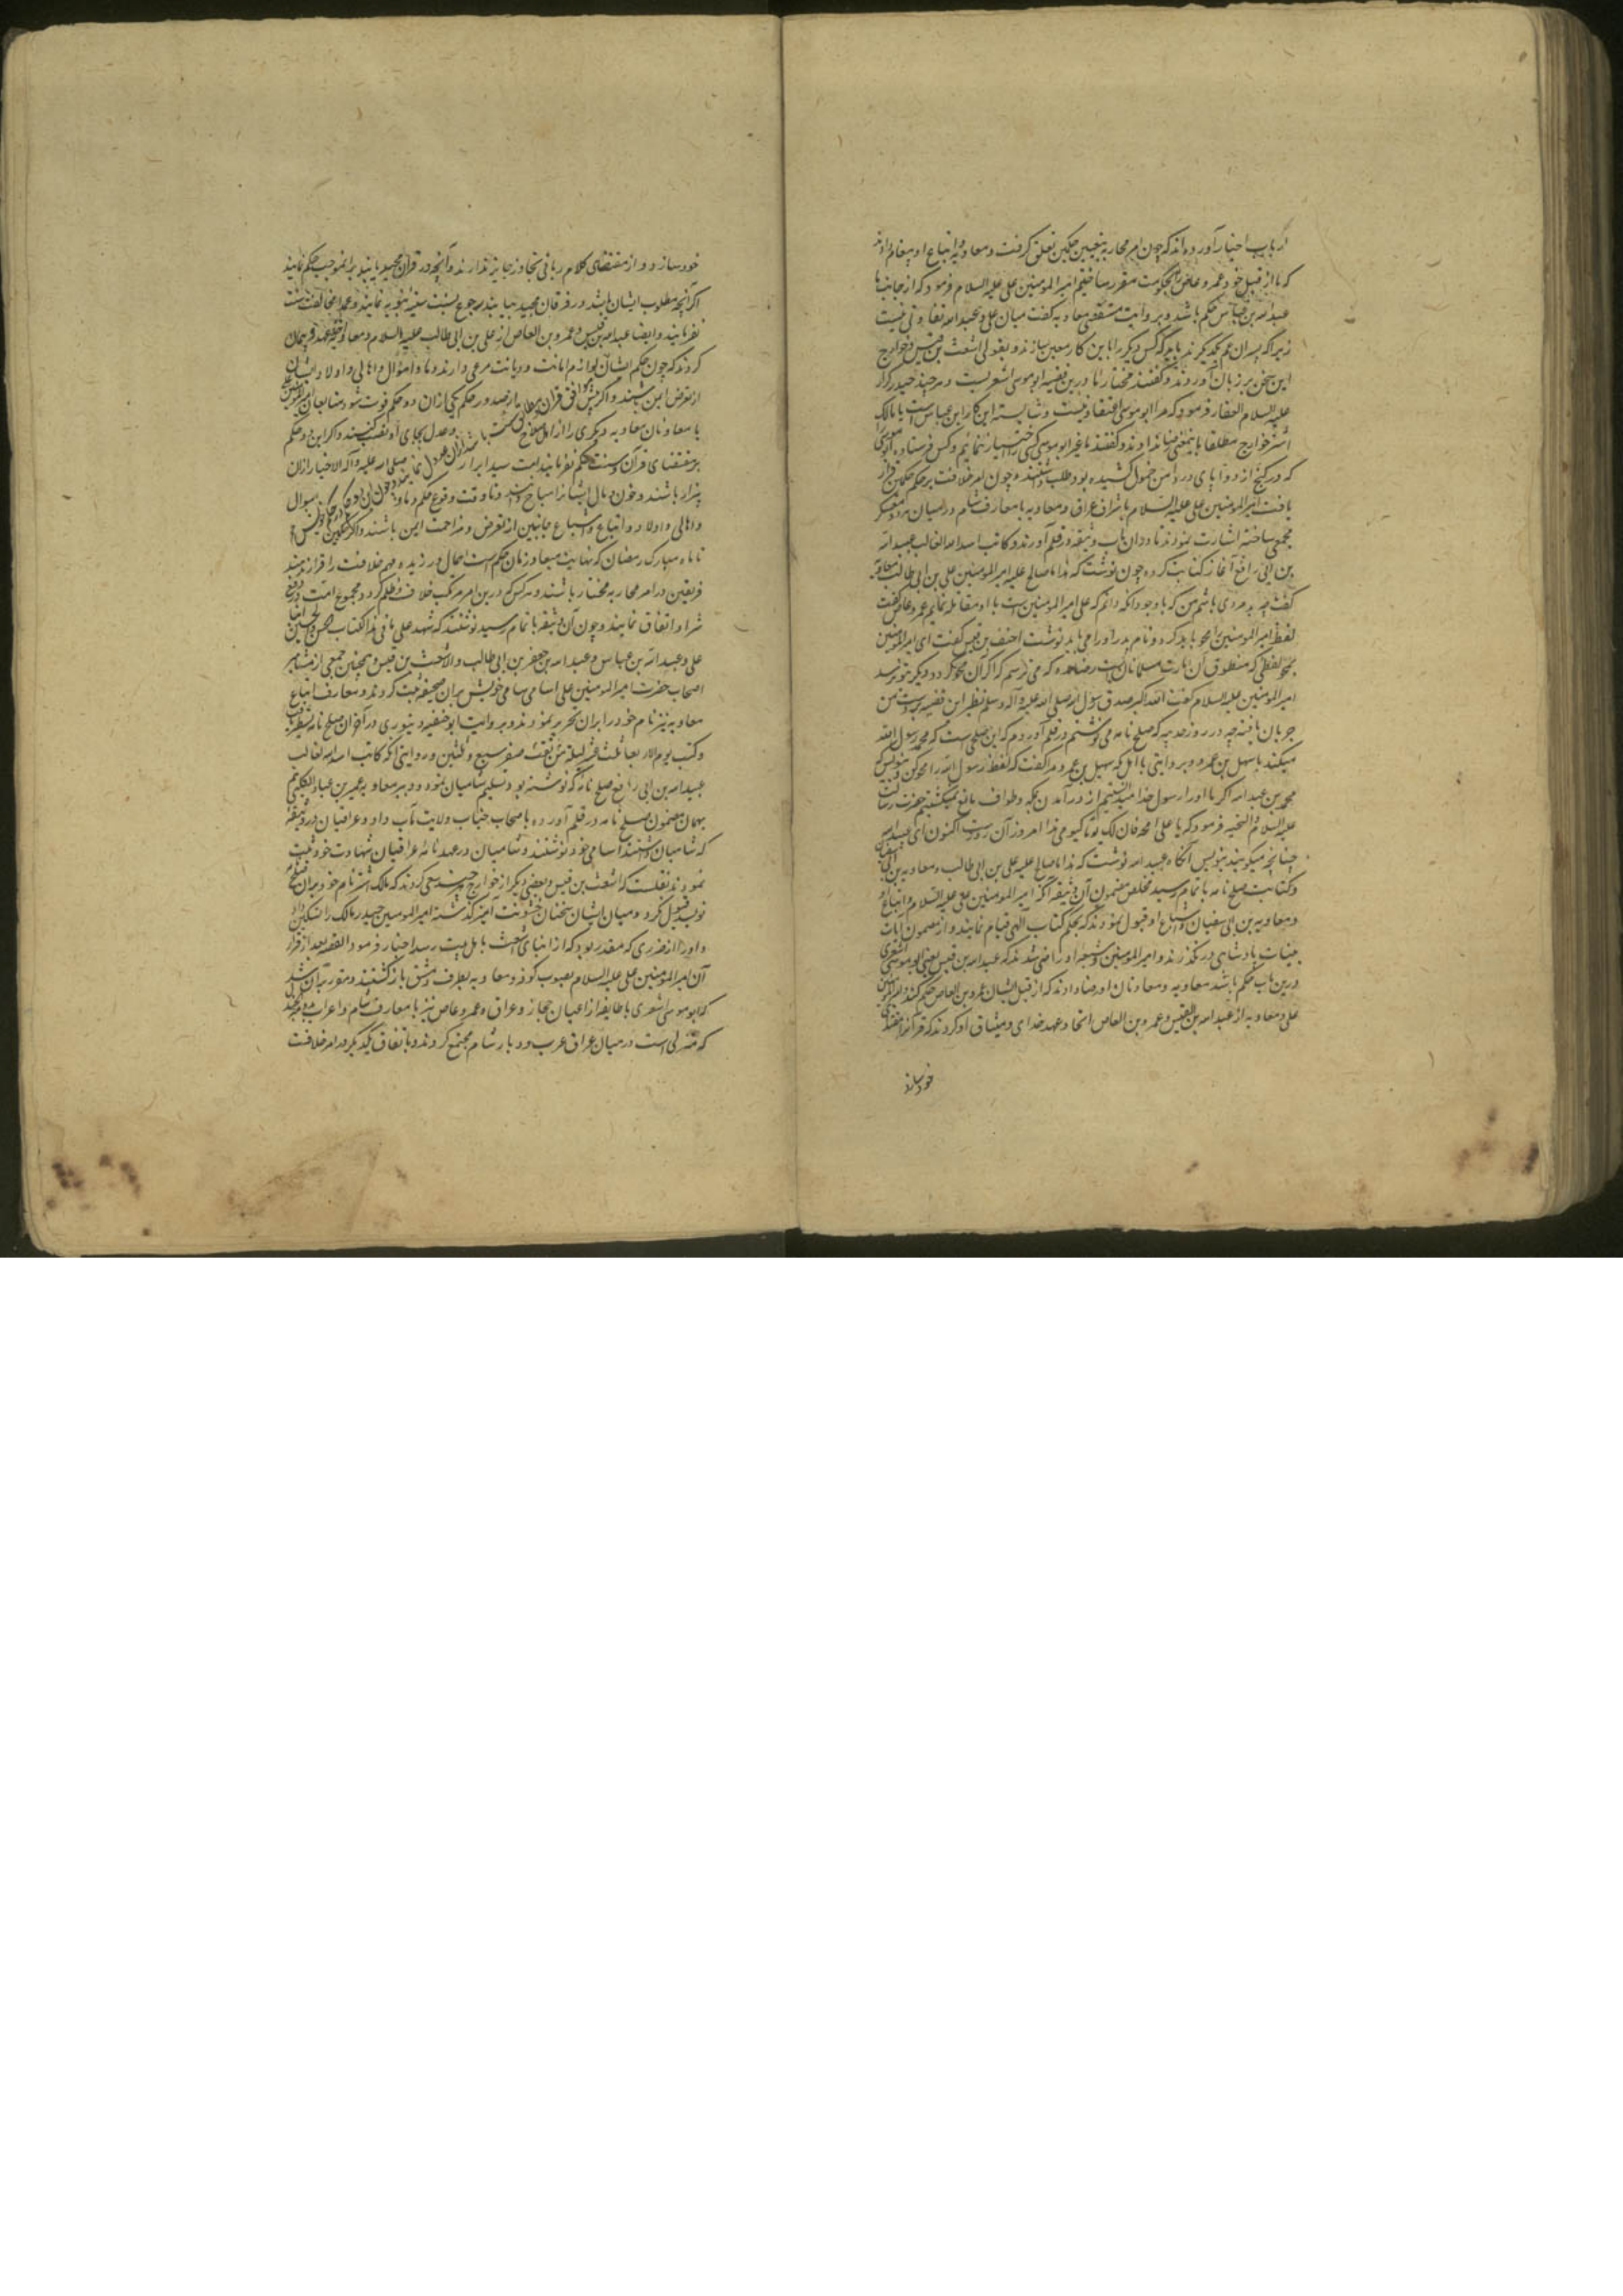 ارباب اخبار آورده‌اند که چون امر محاربه بتعیین حکمین تعلق گرفت و معاویه و اتباع او پیغام دادند
که ما از قبل خود عمرو عاص را بحکومت مقرر ساختیم امیر المومنین علی علیه السلام فرمود که از جانب ما
عبد الله بن عباس حکم باشد و بروایت مستقصی معاویه گفت میان علی و عبد الله تفاوتی نیست
زیرا که پسران عم یکدیگرند باید که کس دیگر را باین کار معین سازند و بقولی اشعث بن قیس و خوارج
این سخن بر زبان آوردند و گفتند مختار ما درین قضیه ابو موسی اشعریست و هر چند حیدر کرار
علیه السلام الغفار فرمود که مرا بابو موسی اعتقاد نیست و شایسته این کار ابن عباس است یا مالک
اشتر خوارج مطلقا باینمعنی رضا ندادند و گفتند ما غیر ابو موسی کسی را اختیار ننمائیم و کس فرستاده ابو موسی را
که در کنج از زوایای در دامن خمول کشیده بود طلب داشتند و چون امر خلافت بر حکم حکمین قرار
یافت امیر المومنین علی علیه السلام با اشراف عراق و معاویه با معارف شام در میان هر دو معسکر
مجمعی ساخته اشارت نمودند تا در آن باب وثیقه در قلم آورند و کاتب اسد الله الغالب عبید الله
بن ابی رافع آغاز کتابت کرده چون نوشت که هذا ما صالح علیه امیر المومنین علی بن ابی طالب معاویه
گفت چه بد مردی باشم من که با وجود آنکه دانم که علی امیر المومنین است با او مقابله نمایم عمرو عاص گفت
لفظ امیر المومنین را محو باید کرد و نام پدر او را می باید نوشت احنف بن قیس گفت ای امیر المومنین
بمحو لفظی که منطوق آن امارت مسلمانان است رضا مده که می ترسم که اگر آن محو گردد دیگر بتو نرسد
امیر المومنین علیه السلام گفت الله اکبر صدق رسول الله صلی الله علیه و آله وسلم نظیر این قضیه بر دست من
جریان یافته چه در روز حدیبیه که صلح نامه می نوشتم در قلم آوردم که این صلحی است که محمد رسول الله
میکند با سهل بن عمرو و بروایتی با اهل مکه سهیل بن عمرو مرا گفت که لفظ رسول الله را محو کن و بنویس که
محمد بن عبد الله اگر ما او را رسول خدا میدانستیم از در آمدن بمکه و طواف مانع نمیگشتیم حضرت رسالت
علیه السلام والتحیه فرمود که یا علی امحه فان لک یوما کیومی هذا امروز آن روزست اکنون ای عبید الله
چنانچه میگویند بنویس آنگاه عبید الله نوشت که هذا ما صالح علیه علی بن ابی طالب و معاویه بن ابی سفیان
و کتابت صلح نامه باتمام رسید مخلص مضمون آن وثیقه آنکه امیر المومنین علی علیه السلام و اتباع او
و معاویه بن ابی سفیان و اشیاع او قبول نمودند که بحکم کتاب الهی قیام نمایند و از مضمون آیات
بینات پادشاهی در نگذرند و امیر المومنین و شیعه او راضی شدند که عبد الله بن قیس یعنی ابو موسی اشعری
درین باب حکم باشد معاویه و معاونان او رضا دادند که از قبل ایشان عمرو بن العاص حکم کند و امیر المومنین
علی و معاویه از عبد الله بن القیس و عمرو بن العاص اتخاذ عهد خدای و میثاق او کردند که قرآنرا مقتدای
خود سازد
خود سازد و از مقتضای کلام ربانی تجاوز جایز ندارند و آنچه در قرآن مجید یابند بر انموجب حکم نمایند
اگر آنچه مطلوب ایشان باشد در فرقان مجید نیابند برجوع بسنت سنیه نبویه نمایند و عمدا مخالفت سنت
نفرمایند و ایضا عبد الله بن قیس و عمرو بن العاص از علی بن ابی طالب علیه السلام و معاویه اخذ عهد و پیمان
کردند که چون حکم ایشان لوازم امانت و دیانت مرعی دارند دماء و اموال و اهالی و اولاد ایشان
از تعرض ایمن باشند و اگر پیش از صدور حکم یکی ازان دو حکم فوت شود متابعان امیر المومنین علی
یا معاونان معاویه دیگری را از اهل صلاح و عدل بجای او نصب کنند و اگر این دو حکم
بر مقتضای قرآن و سنت حکم نفرمایند امت سید ابرار صلی الله علیه و آله الاخیار ازان
بیزار باشند و خون و مال ایشانرا مباح دانند و تا وقت وقوع حکم دماء و اموال
و اهالی و اولاد و اتباع و اشیاع جانبین از تعرض و مزاحمت ایمن باشند و اگر حکمین
تا ماه مبارک رمضان که نهایت میعاد زمان حکم است اهمال ورزیده مهم خلافت را قرار ندهند
فریقین در امر محاربه مختار باشند و هر کس که درین امر مرتکب خلاف و ظلم گردد مجموع امت در دفع
شر او اتفاق نمایند و چون آن وثیقه باتمام رسید نوشتند که شهد علی ما فی هذا الکتاب الحسن و الحسین ابنا
علی و عبد الله بن عباس و عبد الله بن جعفر بن ابی طالب و الاشعث بن قیس و همچنین جمعی از مشاهیر
اصحاب حضرت امیر المومنین علی اسامی سامی خویش بران صحیفه ثبت کردند و معارف اتباع
معاویه نیز نام خود را بران تحریر نمودند و بروایت ابو حنیفه دینوری در آخر آن صلح نامه مسطور بود
و کتب یوم الاربعا لثلث عشر لیله بقیت من صفر سبع و ثلثین و روایتی آنکه کاتب اسد الله الغالب
عبید الله بن ابی رافع صلح نامه که نوشته بود تسلیم شامیان نمود و دبیر معاویه عمیر بن عباد الکلبی هم
بهمان مضمون صلح نامه در قلم آورده باصحاب جناب ولایت مآب داد و عراقیان در وثیقه
که شامیان داشتند اسامی خود نوشتند و شامیان در عهد نامه عراقیان شهادت خود ثبت
نمودند نقلست که اشعث بن قیس و بعضی دیگر از خوارج هر چند سعی کردند که مالک اشتر نام خود بران صحیفه
نویسد قبول نکرد و میان ایشان سخنان خشونت آمیز گذشته امیر المومنین حیدر مالک را تسکین داد
و او را از ضرری که مقدر بود که از ابنای اشعث باهل بیت رسد اخبار فرمود القصه بعد از قرار
آن امیر المومنین علی علیه السلام بصوب کوفه و معاویه بطرف دمشق بازگشتند و مقرر بر آن شد
که ابو موسی اشعری با طایفه از اعیان حجاز و عراق و عمرو عاص نیز با معارف شام و اعراب
که منزلی است در میان عراق عرب و دیار شام مجتمع گردند و باتفاق یکدیگر در امر خلافت